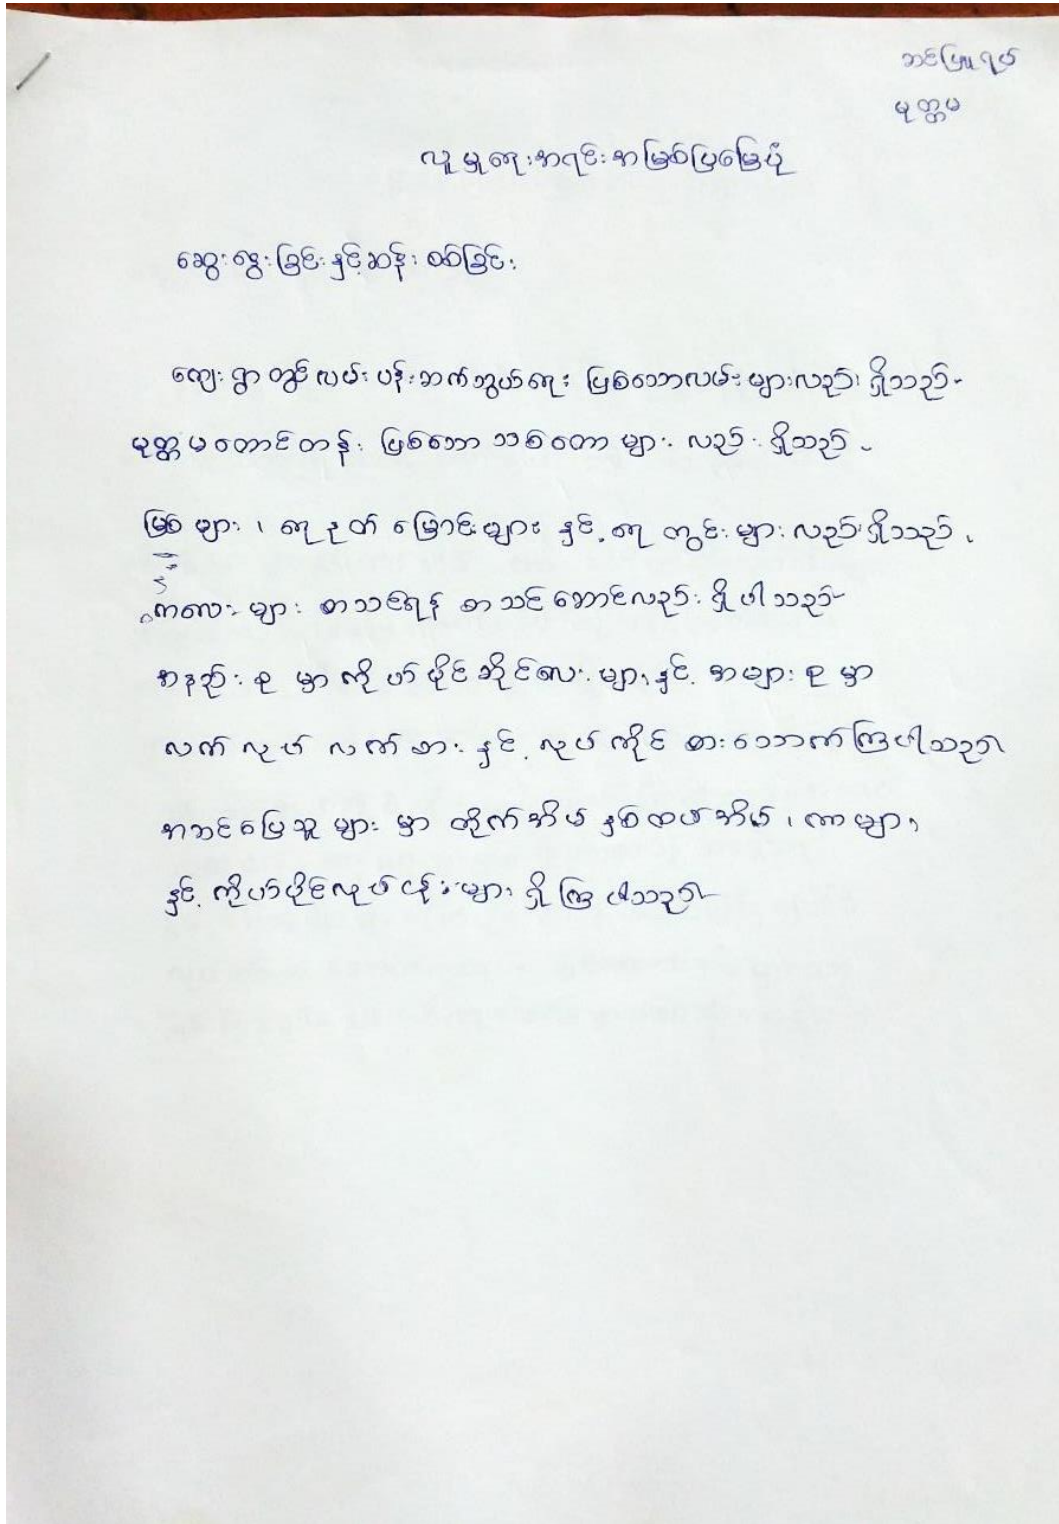 ဆင်ဖြူရပ်
မုတ္တမ
လူမှုရေးအရင်းအမြစ်ပြမြေပုံ
ဆွေးနွေးခြင်းနှင့်ဆန်းစစ်ခြင်း
ကျေးရွာတွင်လမ်းပန်းဆက်သွယ်ရေး ဖြစ်သောလမ်းများလည်းရှိသည်-
မုတ္တမတောင်တန်း ဖြစ်သော သစ်တောများ လည်းရှိသည်-
မြစ်များ၊ ရေနုတ်မြောင်းများ နှင့် ရေတွင်းများလည်းရှိသည်.
ကလေးများ စာသင်ရန် စာသင်ဆောင်လည်းရှိပါသည်-
အနည်းစုမှာကိုပ်ပိုင်ဆိုင်လေးများနှင့် အများစုမှာ
လက်လုပ်လက်စား နှင့် လုပ်ကိုင်စားသောက်ကြပါသည်။
အဆင်ပြေသူများမှာ တိုက်အိမ် နှစ်ထပ်အိမ်၊ ကားများ
နှင့် ကိုပ်ပိုင်လုပ်ငန်းများရှိကြပါသည်။